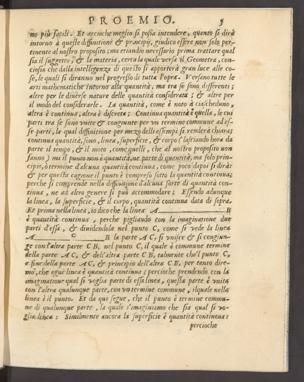 PROEMIO. 5
mo più facili. Et acciochè meglio si possa intendere, quanto si dirà
intorno à queste diffinitioni & principij, giudico essere non solo per-
tinente al nostro proposito, ma etiandio necessario prima trattar qual
sia il suggetto, & la materia, cerca laquale versa il Geometra, con-
ciosia che dalla intelligenza di questo si apporterà gran luce alle co-
se, le quali si diranno nel progresso di tutta l'opra. Versano tutte le
arti mathematiche intorno alla quantità; ma tra se sono differenti;
altre per le diverse nature delle quantità considerate; & altre per
il modo del considerarle. La quantità, come è noto à ciascheduno,
altra è continua, altra è discreta; Continua quantità è quella, le cui
parti tra se sono unite & congiunte per un termine commune ad es-
se parti, la qual diffinitione per mezo delli essempi si renderà chiara;
continua quantità, sono linea, superficie, & corpo (lasciando hora da
parte il tempo, & il moto, come quelli, che al nostro proposito non
fanno) ma il punto non è quantità, ne parte di quantità, ma solo prin-
cipio, o termine d'alcuna quantità continua, come poco dapoi si dirà:
& per questa cagione il punto è compreso sotto la quantità continua;
perche si comprende nella diffinitione d'alcune sorte di quantità con-
tinua, ne ad altro genere si può accommodare; Essendo adunque
la linea, la superficie, & il corpo, quantità continua data di sopra.
Et prima nella linea, io dico che la linea A B
è quantità continua, perche pigliando con la imaginatione due
parti d'essa, & dividendola nel punto C, come si vede la linea
A C B la parte A C, si unisce & si congiun-
ge con l'altra parte C B, nel punto C, il quale è commune termine
della parte A C, & dell'altra parte C B, talmente che'l punto C,
è fine della parte A C, & principio dell'altra C B, per tanto dire-
mo, che ogni linea è quantità continua; percioche prendendo con la
imaginatione qual si voglia parte di essa linea, questa parte è unita
con l'altra qualunque parte, con un termine commune, ilquale nella
linea è il punto. Et da qui segue, che il punto è termine commu-
ne di qualunque parte, la quale s'imaginiamo che sia qual si vo-
glia linea: Similmente ancora la superficie è quantità continua;
percioche